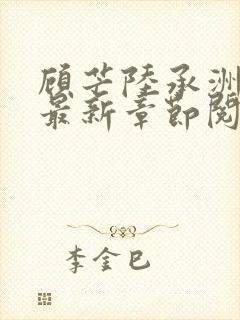 顾芒陆承洲
最新章节阅
李金巳